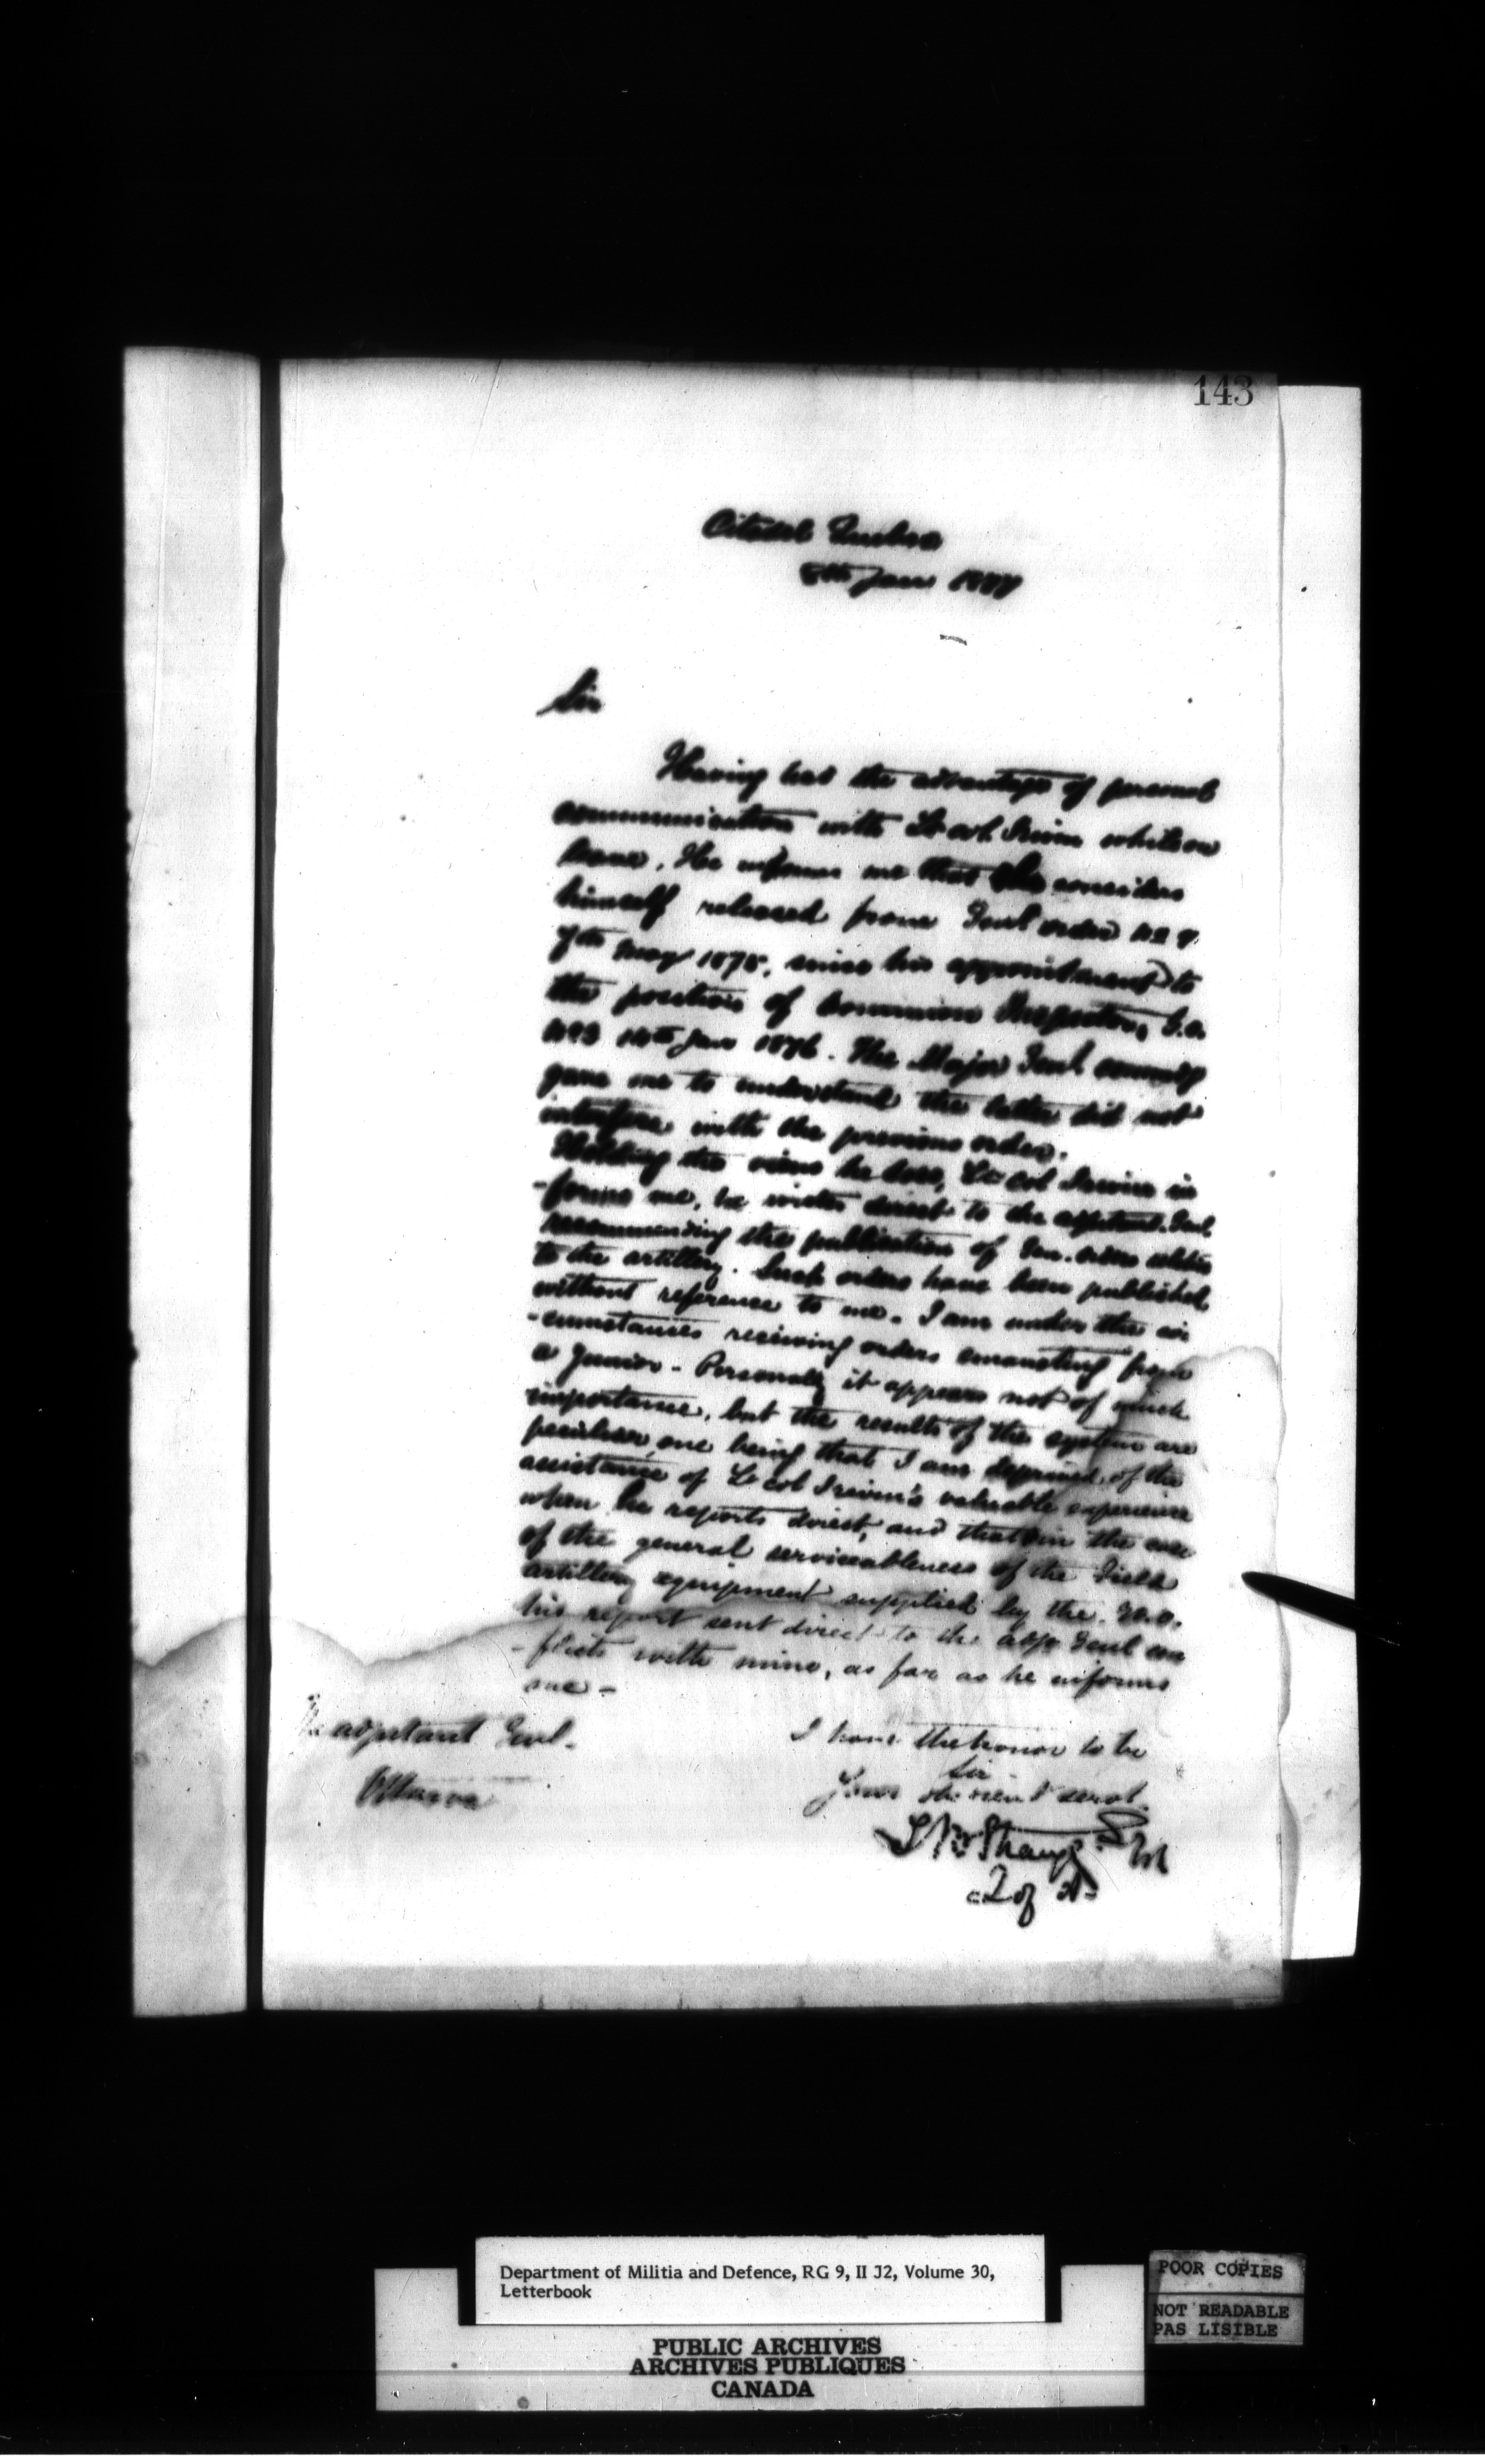 143
Citadel Quebec
8th Jany 1877
Sir
Having had the advantage of personal
communication with Lt Col. Irwin whilst on
leave. He informs me that he considers
himself released from Genl order No
7th May 1875, since his appointment to
the position of Dominion Inspector, G.O.
No 3 14th Jany 1876. The Major Genl commdg
gave me to understand the latter did not
interfere with the previous order.
Holding the views he does, Lt Col Irwin in
-forms me, he writes direct to the adjutant Genl
recommending the publication of Gen. orders
to the artillery. Such orders have been published
without reference to me. I am under the cir
-cumstances receiving orders emanating from
a Junior - Personally it appears not of much
importance, but the results of the system are
peculiar one being that I am deprived of the
assistance of Lt Col Irwin's valuable experience
when he reports direct, and that in the case
of the general serviceableness of the Field
artillery equipment supplied by the
his report sent direct to the adjt Genl con
-flicts with mine, as far as he informs
me -
I have the honor to be
Sir
Your obedient servt.
The adjutant Genl.
Ottawa
Strange Lt Col
I of A
Department of Militia and Defence, RG 9, II J2, Volume 30,
Letterbook
POOR COPIES
NOT READABLE
PAS LISIBLE
PUBLIC ARCHIVES
ARCHIVES PUBLIQUES
CANADA